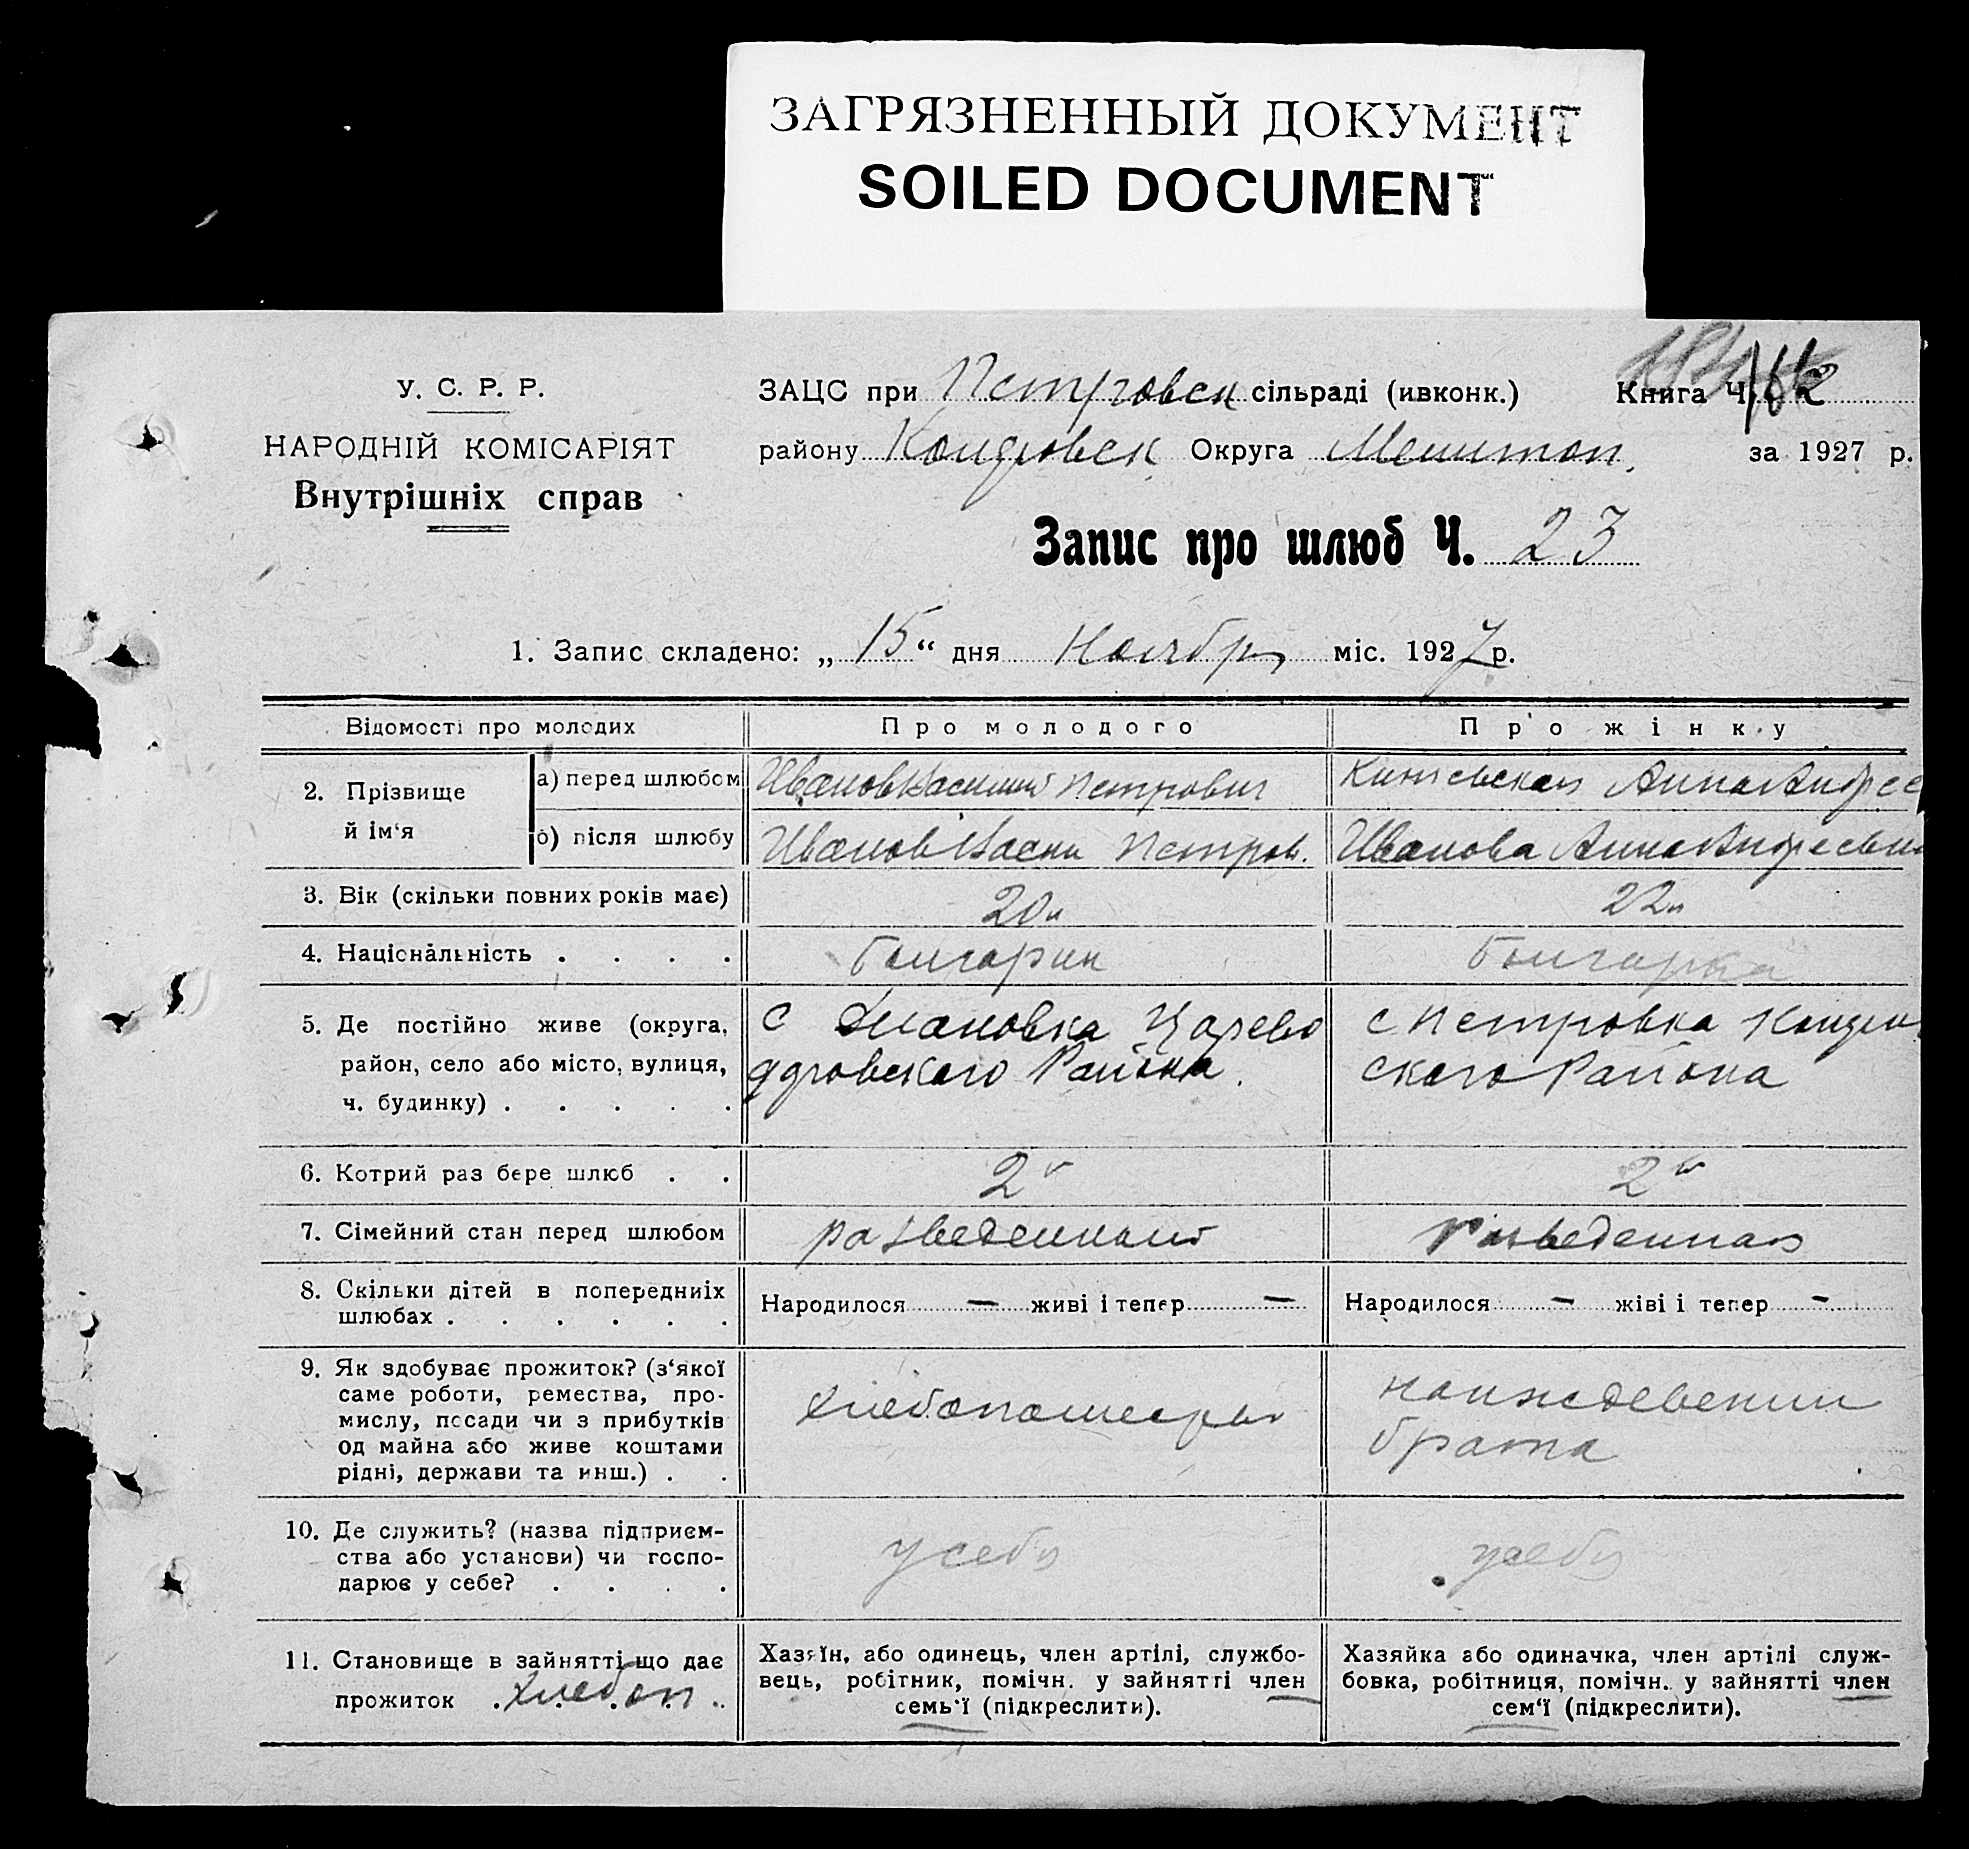 ЗАГРЯЗНЕННЫЙ ДОКУМЕНТ
SOILED DOCUMENT
У. С. Р. Р.
НАРОДНІЙ КОМІСАРІЯТ
Внутрішніх справ
ЗАЦС при Петровск сільраді (ивконк.) Книга Ч.
району Округа Мелитоп. за 1927 р.
Запис про шлюб Ч. 23
1. Запис складено: „15“ дня Ноября міс. 1927 р.
Відомості про молодих Про молодого Про жінку
2. Прізвище й ім‘я а) перед шлюбом Иванов Василий Петрович Анна Андрее
б) після шлюбу Иванов Васил Петров. Иванова Анна Андреевна
3. Вік (скільки повних років має) 20л 22л
4. Національність . . . . болгарин болгарка
5. Де постійно живе (округа, с Диановка Царево с Петровка
район, село або місто, вулиця, дровского Района. ского Района
ч. будинку) . . . . .
6. Котрий раз бере шлюб . . 2й 2й
7. Сімейний стан перед шлюбом разведенный разведенная
8. Скільки дітей в попередниіх Народилося — живі і тепер — Народилося — жіві і тепер —
шлюбах . . . . . .
9. Як здобуває прожиток? (з‘якої
саме роботи, ремества, про- на иждевении
мислу, посади чи з прибутків хлебопашеств брата
од майна або живе коштами
рідні, держави та инш.) . .
10. Де служить? (назва підприєм-
ства або установи) чи госпо- у себя у себя
дарює у себе? . . . .
11. Становище в зайнятті що дає Хазяїн, або одинець, член артілі, службо- Хазяйка або одиначка, член артілі служ-
прожиток . хлебоп . . вець, робітник, помічн. у зайнятті член бовка, робітниця, помічн. у зайнятті член
семь‘ї (підкреслити). сем‘ї (підкреслити).